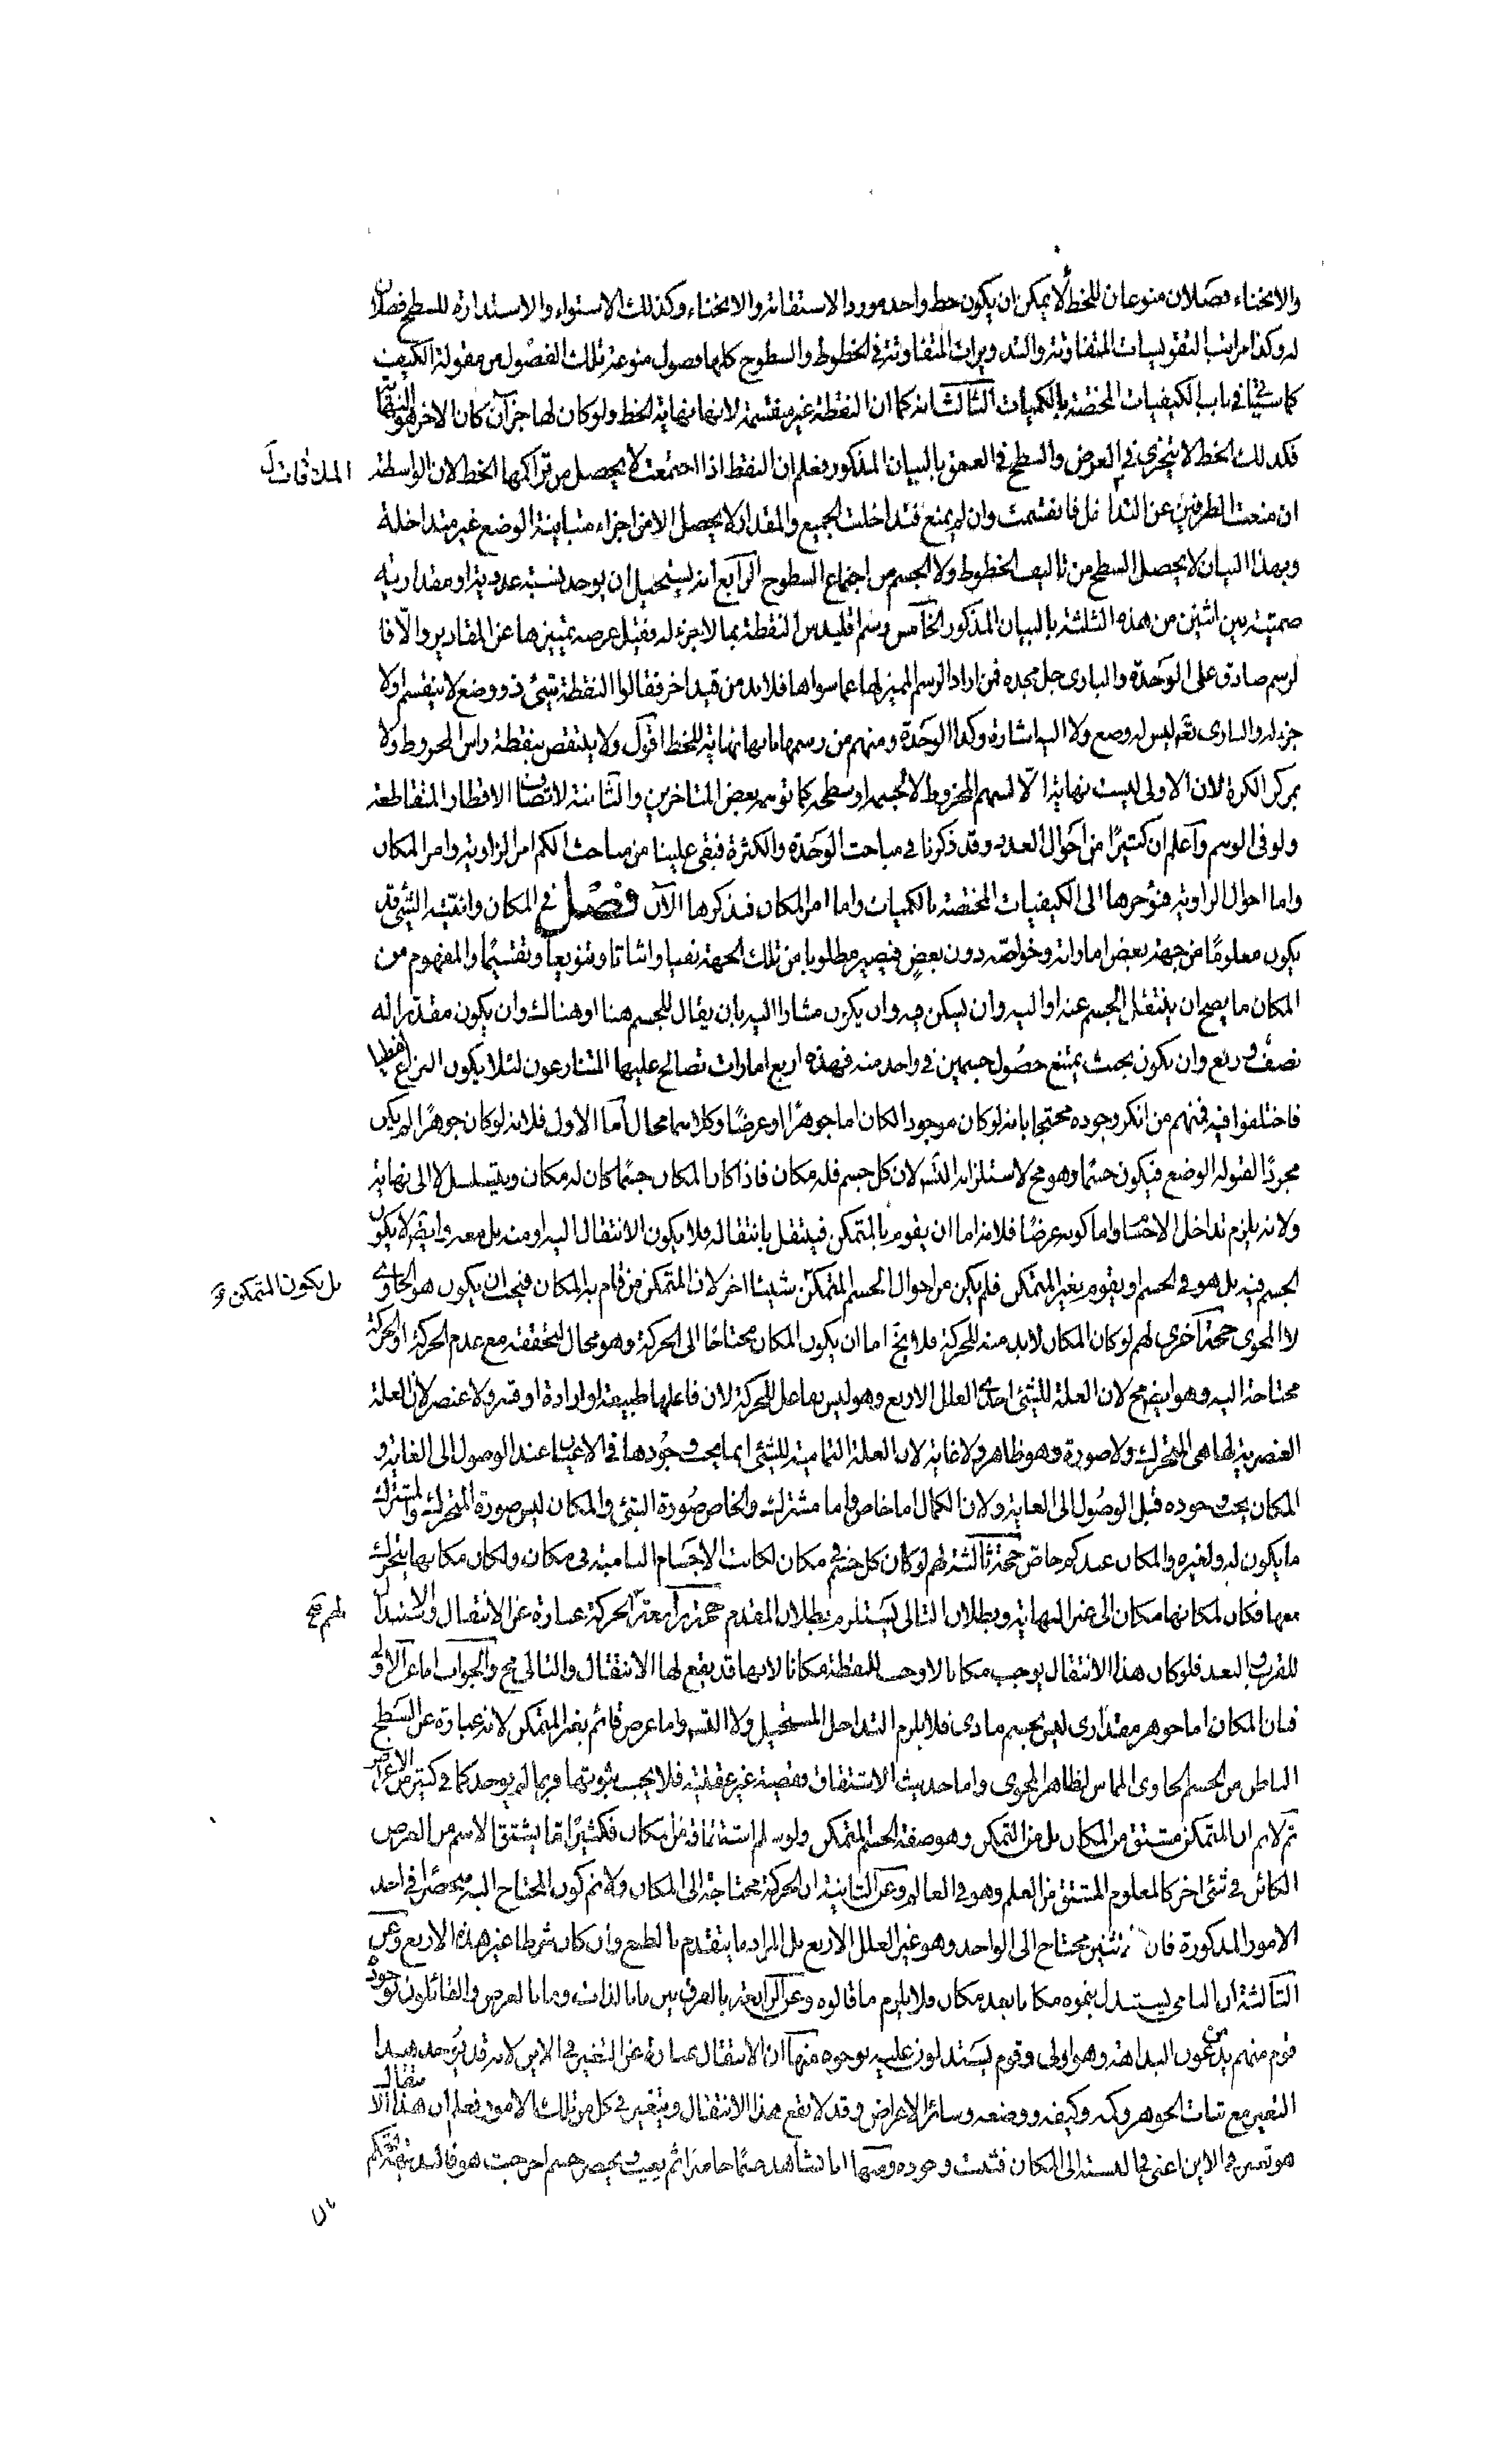 والانحناء فصلان منوعان للخط لا يمكن ان يكون خط واحد مورد الاستقامة والانحناء وكذلك الاستواء والاستدارة للسطح فصلان
له وكذا مراتب التقويسات المتفاوتة والتدويرات المتفاوتة في الخطوط والسطوح كلها فصول منوعة وتلك الفصول من مقولة الكيف
كما سيجئ في باب الكيفيات المختصة بالكميات الثالث انه كما ان النقطة غير منقسمة لانها نهاية الخط ولو كان لها جزآن كان الاخر هو النهاية
فكذلك الخط لا يتجزى في العرض والسطح في العمق بالبيان المذكور فعلم ان النقط اذا اجتمعت لا يحصل من تراكمها الخط لان الواسطة
الملاقات لـ
ان منعت الطرفين عن التداخل فانقسمت وان لم يمنع فتداخلت الجميع والمقدار لا يحصل الا من اجزاء متباينة الوضع غير متداخلة
وبهذا البيان لا يحصل السطح من تاليف الخطوط ولا الجسم من اجتماع السطوح الرابع انه يستحيل ان يوجد نسبة عددية او مقدارية
صمّيّة بين اثنين من هذه الثلثة بالبيان المذكور الخامس رسم اقليدس النقطة بما لا جزء له فقيل غرضه تمييزها عن المقادير والا فا
لرسم صادق على الوحدة والبارى جل مجده فمن اراد الرسم المميز لها عما سواها فلابد من قيد اخر فقالوا النقطة شيئ ذو وضع لا ينقسم ولا
جزء له والبارى تعٰ ليس له وضع ولا اليه اشارة وكذا الوحدة ومنهم من رسمها بانها نهاية للخط اقول ولا ينتقض بنقطة راس المخروط ولا
بمركز الكرة لان الاولى ليست نهاية الا لسهم المخروط لا لجسمه او سطحه كما توهمه بعض المتاخرين والثانية لانصاف الاقطار المتقاطعة
ولو في الوهم واعلم ان كثيرًا من احوال العدد وقد ذكرنا في مباحث الوحدة والكثرة فبقى علينا من مباحث الكم امر الزاوية وامر المكان
واما احوال الزاوية فنؤخرها الى الكيفيات المختصة بالكميات واما امر المكان فنذكرها الان فصل في المكان وانيّته الشئ قد
يكون معلومًا من جهة بعض اماراته وخواصّه دون بعضٍ فيصير مطلوبا من تلك الجهة نفيا واثباتا وتنويعاً وتقسيمًا والمفهوم من
المكان ما يصح ان ينتقل الجسم عنه او اليه وان يسكن فيه وان يكون مشارا اليه بان يقال للجسم هنا او هناك وان يكون مقدرا له
نصف وربع وان يكون بحيث يمتنع حصول جسمين في واحد منه فهذه اربع امارات تصالح عليها المتنازعون لئلا يكون النزاع لفظيا
فاختلفوا فيه فمنهم من انكر وجوده محتجا بانه لو كان موجودا لكان اما جوهرًا او عرضًا وكلاهما محال اما الاول فلانه لو كان جوهرًا لم يكن
مجردًا لقبوله الوضع فيكون جسمًا وهو مح لاستلزامه التس لان كل جسم فله مكان فاذا كان المكان جسمًا كان له مكان ويتسلسل لا الى نهاية
ولانه يلزم تداخل الاجسام واما كونه عرضًا فلانه اما ان يقوم بالمتمكن فينتقل بانتقاله فلا يكون الانتقال اليه ومنه بل معه وايضا لا يكون
الجسم فيه بل هو في الجسم او يقوم بغير المتمكن فلم يكن من احوال الجسم المتمكن شيئا اخر لان المتمكن من قام به المكان فيجب ان يكون هو الحاوى
بل يكون المتمكن
لا المحوى حجة اخرى لهم لو كان المكان لابد منه للحركة فلا يخ اما ان يكون المكان محتاجًا الى الحركة وهو محال لتحققه مع عدم الحركة او الحركة
محتاجة اليه وهو ايضا مح لان العلة للشئ احدى العلل الاربع وهو ليس بفاعل للحركة لان فاعلها طبيعة او ارادة او قسر ولا عنصر لان العلة
العنصرية لها هى المتحرك ولا صورة وهو ظاهر ولا غاية لان العلة التمامية للشئ انما يجب وجودها في الاعيان عند الوصول الى الغاية و
المكان يجب وجوده قبل الوصول الى الغاية ولان الكمال اما خاص واما مشترك والخاص صورة الشئ والمكان ليس صورة المتحرك والمشترك
ما يكون له ولغيره والمكان عندكم خاصّ حجة ثالثة لهم لو كان كل جسم في مكان لكانت الاجسام النامية في مكان ولكان مكانها يتحرك
معها فكان لمكانها مكان الى غير النهاية وبطلان التالى يستلزم بطلان المقدم حجة رابعة الحركة عبارة عن الانتقال والاستبدال
للقرب والبعد فلو كان هذا الانتقال يوجب مكانا لاوجب للنقطة مكانا لانها قد يقع لها الانتقال والتالى مح والجواب اما عن الاولى
فبان المكان اما جوهر مقدارى ليس بجسم مادى فلا يلزم التداخل المستحيل ولا التس واما عرض قائم بغير المتمكن لانه عبارة عن السطح
الباطن من الجسم الحاوى المماس لظاهر المحوى واما حديث الاشتقاق فقضية غير عقلية فلا يجب ثبوتها فربما لم يوجد كما في كثير من الاعراض
ثم لانم ان المتمكن مشتق من المكان بل من التمكن وهو صفة الجسم المتمكن ولو سلم اشتقاقه من المكان فكثيرًا مّا يشتق الاسم من العرض
الكائن في شئ اخر كالمعلوم المشتق من العلم وهو في العالم وعن الثانية ان الحركة محتاجة الى المكان ولانم كون المحتاج اليه منحصرًا في احد
الامور المذكورة فان الاثنين محتاج الى الواحد وهو غير العلل الاربع بل المراد ما يتقدم بالطبع وان كان شرطا غير هذه الاربع وعن
الثالثة ان النامى يستبدل بنموه مكانا بعد مكان فلا يلزم ما قالوه وعن الرابعة بالفرق بين ما بالذات وما بالعرض والقائلون بوجوده
قوم منهم يدعون البداهة وهو اولى وقوم يستدلون عليه بوجوه منها ان الانتقال عبارة عن التغير في الاين لانه قد يوجد هذا
التغير مع ثبات الجوهر وكمه وكيفه ووضعه وسائر الاعراض وقد لا يقع هذا الانتقال ويتغير في كل من تلك الامور فعلم ان هذا الانتقال
هو تغير في الاين اعنى في النسبة الى المكان فثبت وجوده ومنها انا نشاهد جسمًا حاضرًا ثم يغيب ويحضر جسم اخر حيث هو